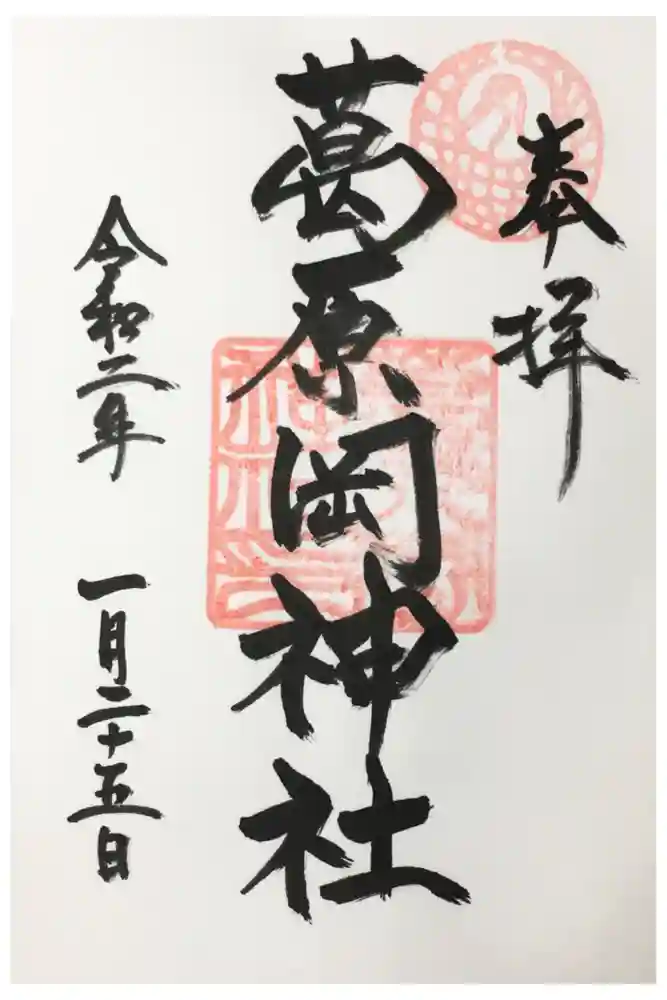 奉拝
葛原岡神社
令和二年 一月二十五日